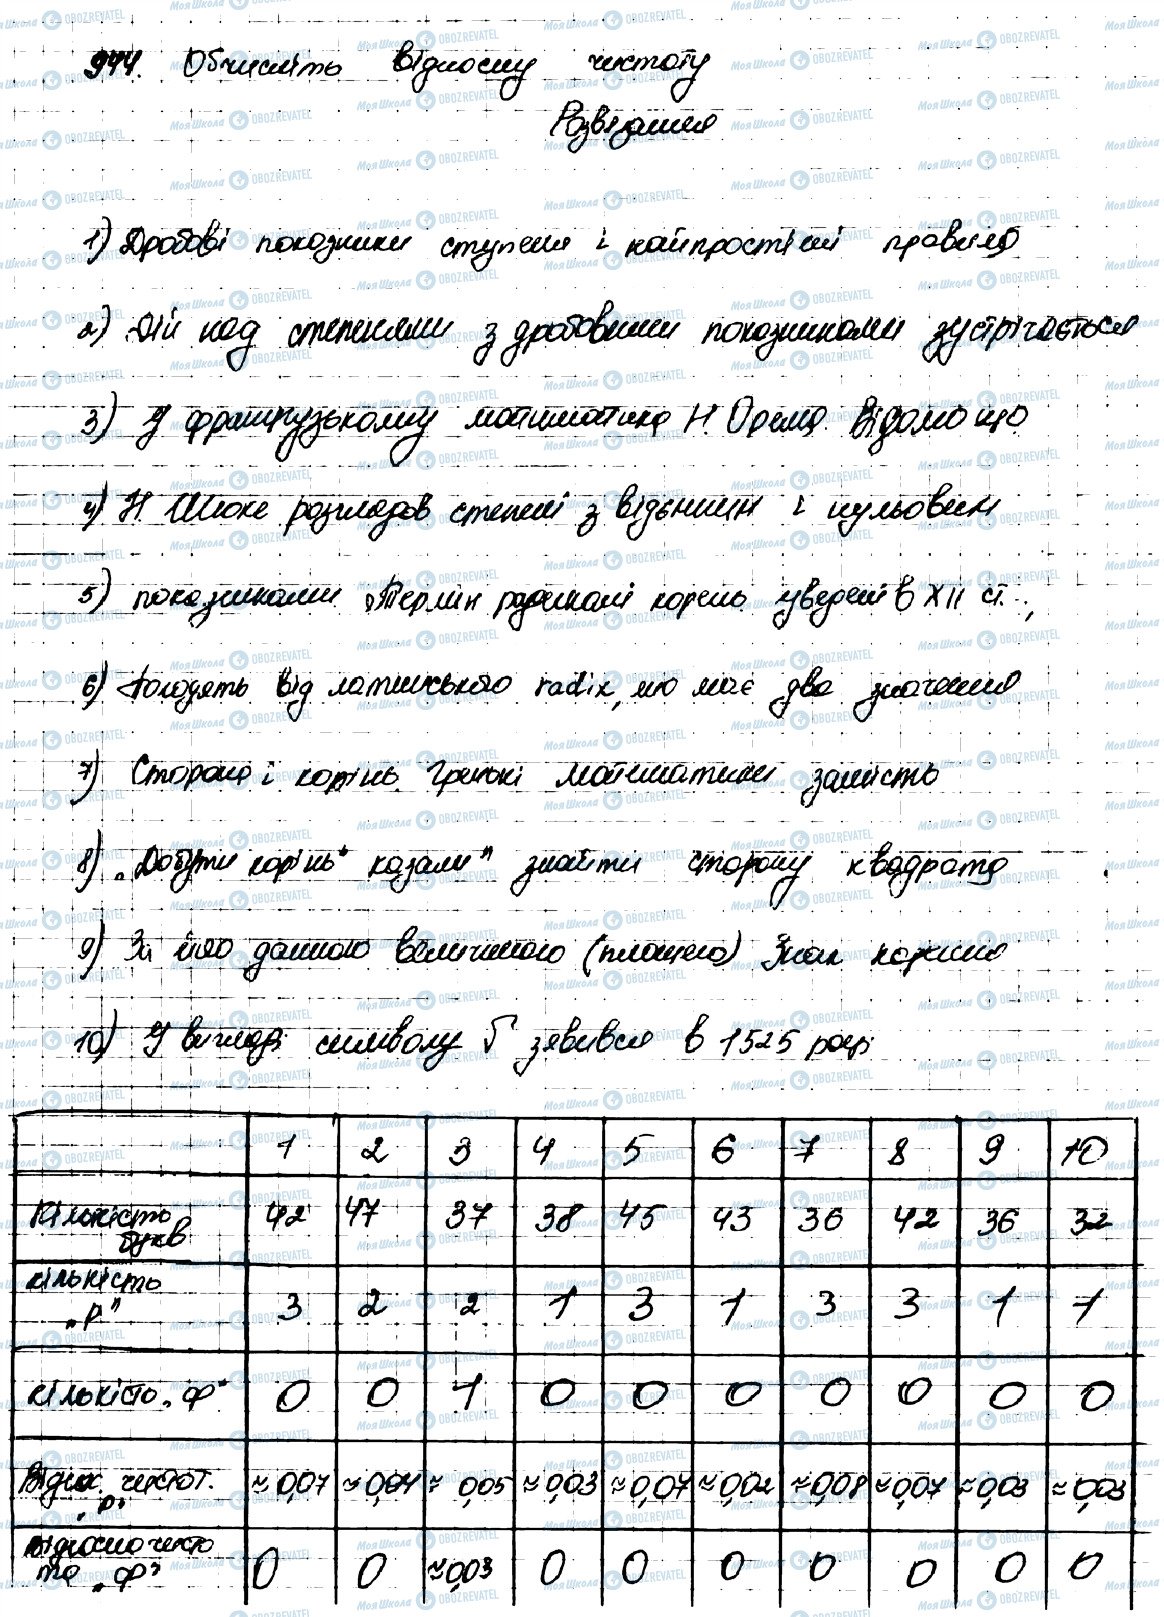 944. Обчисліть відносну частоту
Розвязання
1) Дробові показники ступеня і найпростіші правила
2) Дій над степенями з дробовими показниками зустрічається
3) У французькому математика Н. Орема. Відомо що
4) Н. Шюке розглядав степені з відємним і нульовим
5) показниками. Термін радикалі корень уведені в XII ст.,
6) Походять від латинського radix, що має два значення
7) Сторона і корінь. Грецькі математики замість
8) „Добути корінь" казали " знайти сторону квадрата
9) За його даною величиною (площею) Знак кореня
10) У вигляді символу √ зявився в 1525 році
1 2 3 4 5 6 7 8 9 10
Кількість букв 42 47 37 38 45 43 36 42 36 32
кількість „р" 3 2 2 1 3 1 3 3 1 1
кількість „ф" 0 0 1 0 0 0 0 0 0 0
Віднос. частот. „р" ≈0,07 ≈0,04 ≈0,05 ≈0,03 ≈0,07 ≈0,02 ≈0,08 ≈0,07 ≈0,03 ≈0,03
Відносна часто
та „ф" 0 0 ≈0,03 0 0 0 0 0 0 0